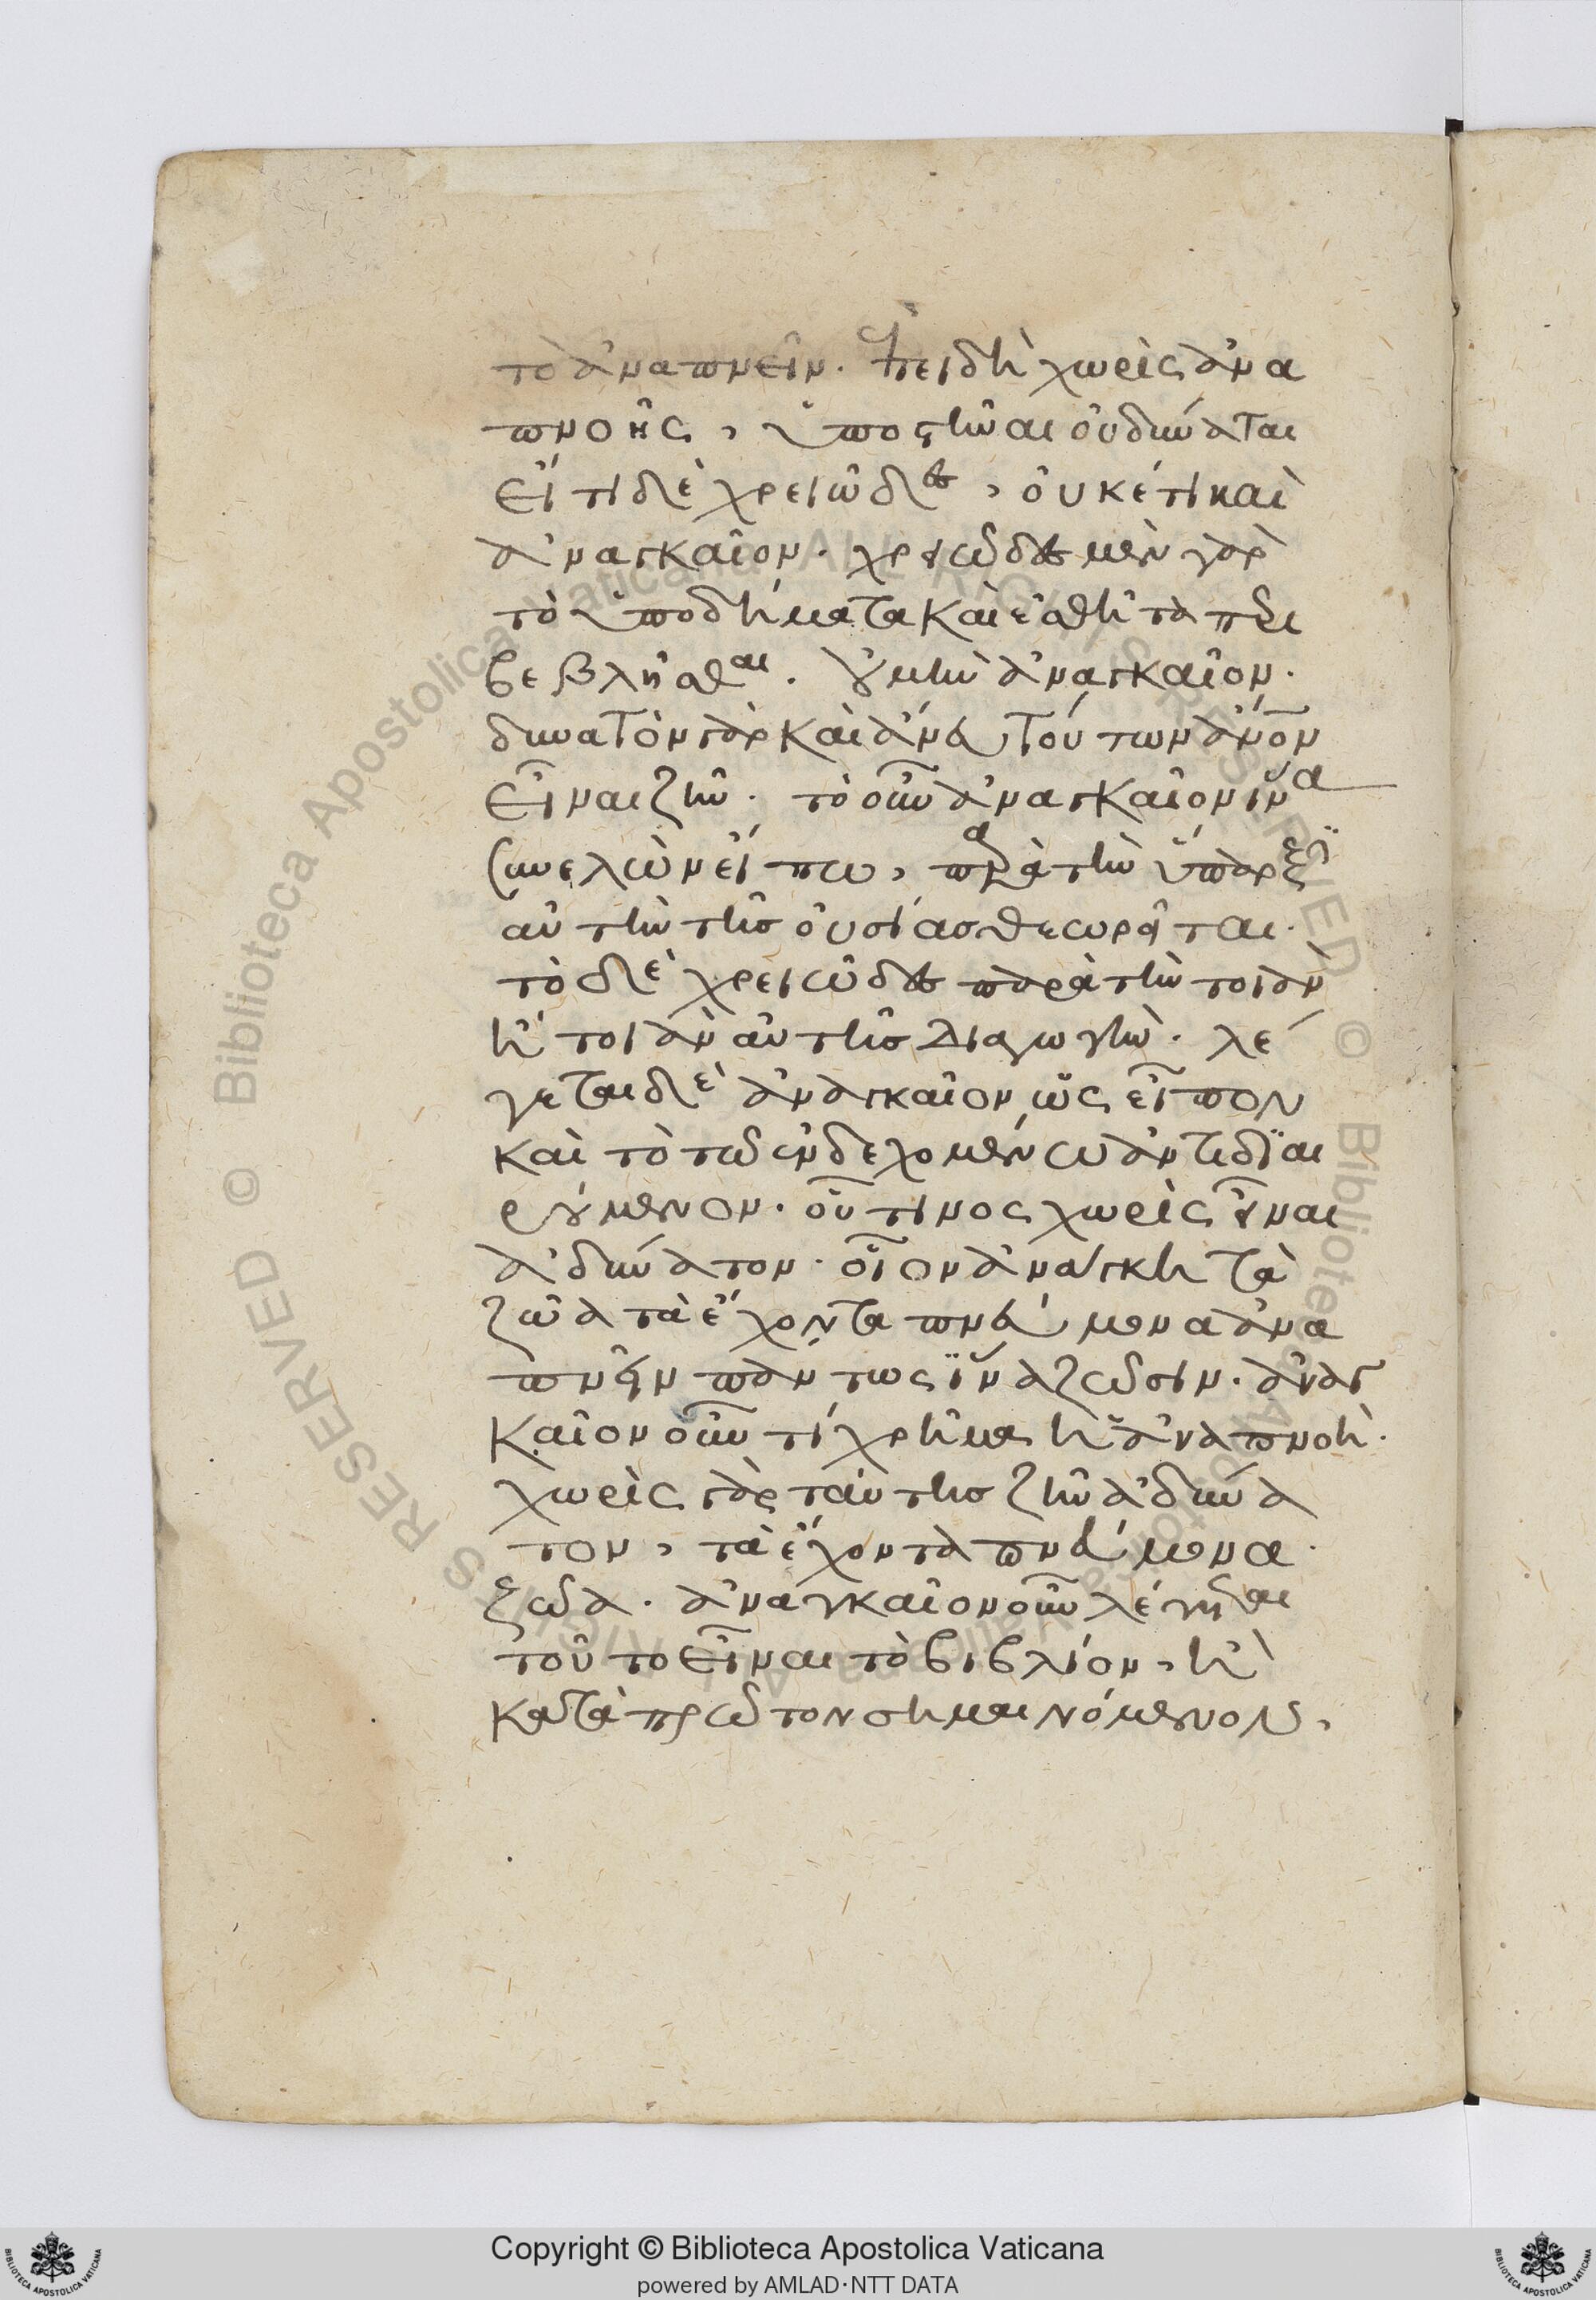 τὸ ἀναπνεῖν. ἐπειδὴ χωρὶς ἀνα
πνοῆς, ὑποστῆναι οὐ δύναται
εἴ τι δὲ χρειῶδες, οὐκέτι καὶ
ἀναγκαῖον. χρειῶδες μὲν γὰρ
τὸ ὑποδήματα καὶ ἐσθῆτα περι
βεβλῆσθαι. οὐ μὴν ἀναγκαῖον.
δυνατὸν γὰρ καὶ ἄνευ τούτων ἄνον
εἶναι ζῆν. τὸ οὖν ἀναγκαῖον ἵνα
συνελὼν εἴπω, παρὰ τὴν ὕπαρξϊ
αὐτὴν τῆς οὐσίας θεωρεῖται.
τὸ δὲ χρειῶδες παρὰ τὴν τοιὰν
ἢ τοιὰν αὐτῆς διαγωγὴν. λέ
γεται δὲ ἀναγκαῖον ὡς εἶπον
καὶ τὸ τῶ ἐνδεχομένω ἀντιδϊαι
ρούμενον. οὗ τινος χωρὶς εἶναι
ἀδύνατον. οἷον ἀνάγκη τὰ
ζῶα τὰ ἔχοντα πνεύμονα ἀνα
πνεῖν πάντως ἵνα ζῶσιν. ἀναγ
καῖον οὖν τί χρῆμα ἡ ἀναπνοὴ.
χωρὶς γὰρ ταύτης ζῆν ἀδύνα
τον, τὰ ἔχοντα πνεύμονα
ζῶα. ἀναγκαῖον οὖν λέγεται
τοῦτο εἶναι τὸ βιβλίον, ἢ
κατὰ πρῶτον σημαινόμενον,
Copyright © Biblioteca Apostolica Vaticana
powered by AMLAD·NTT DATA